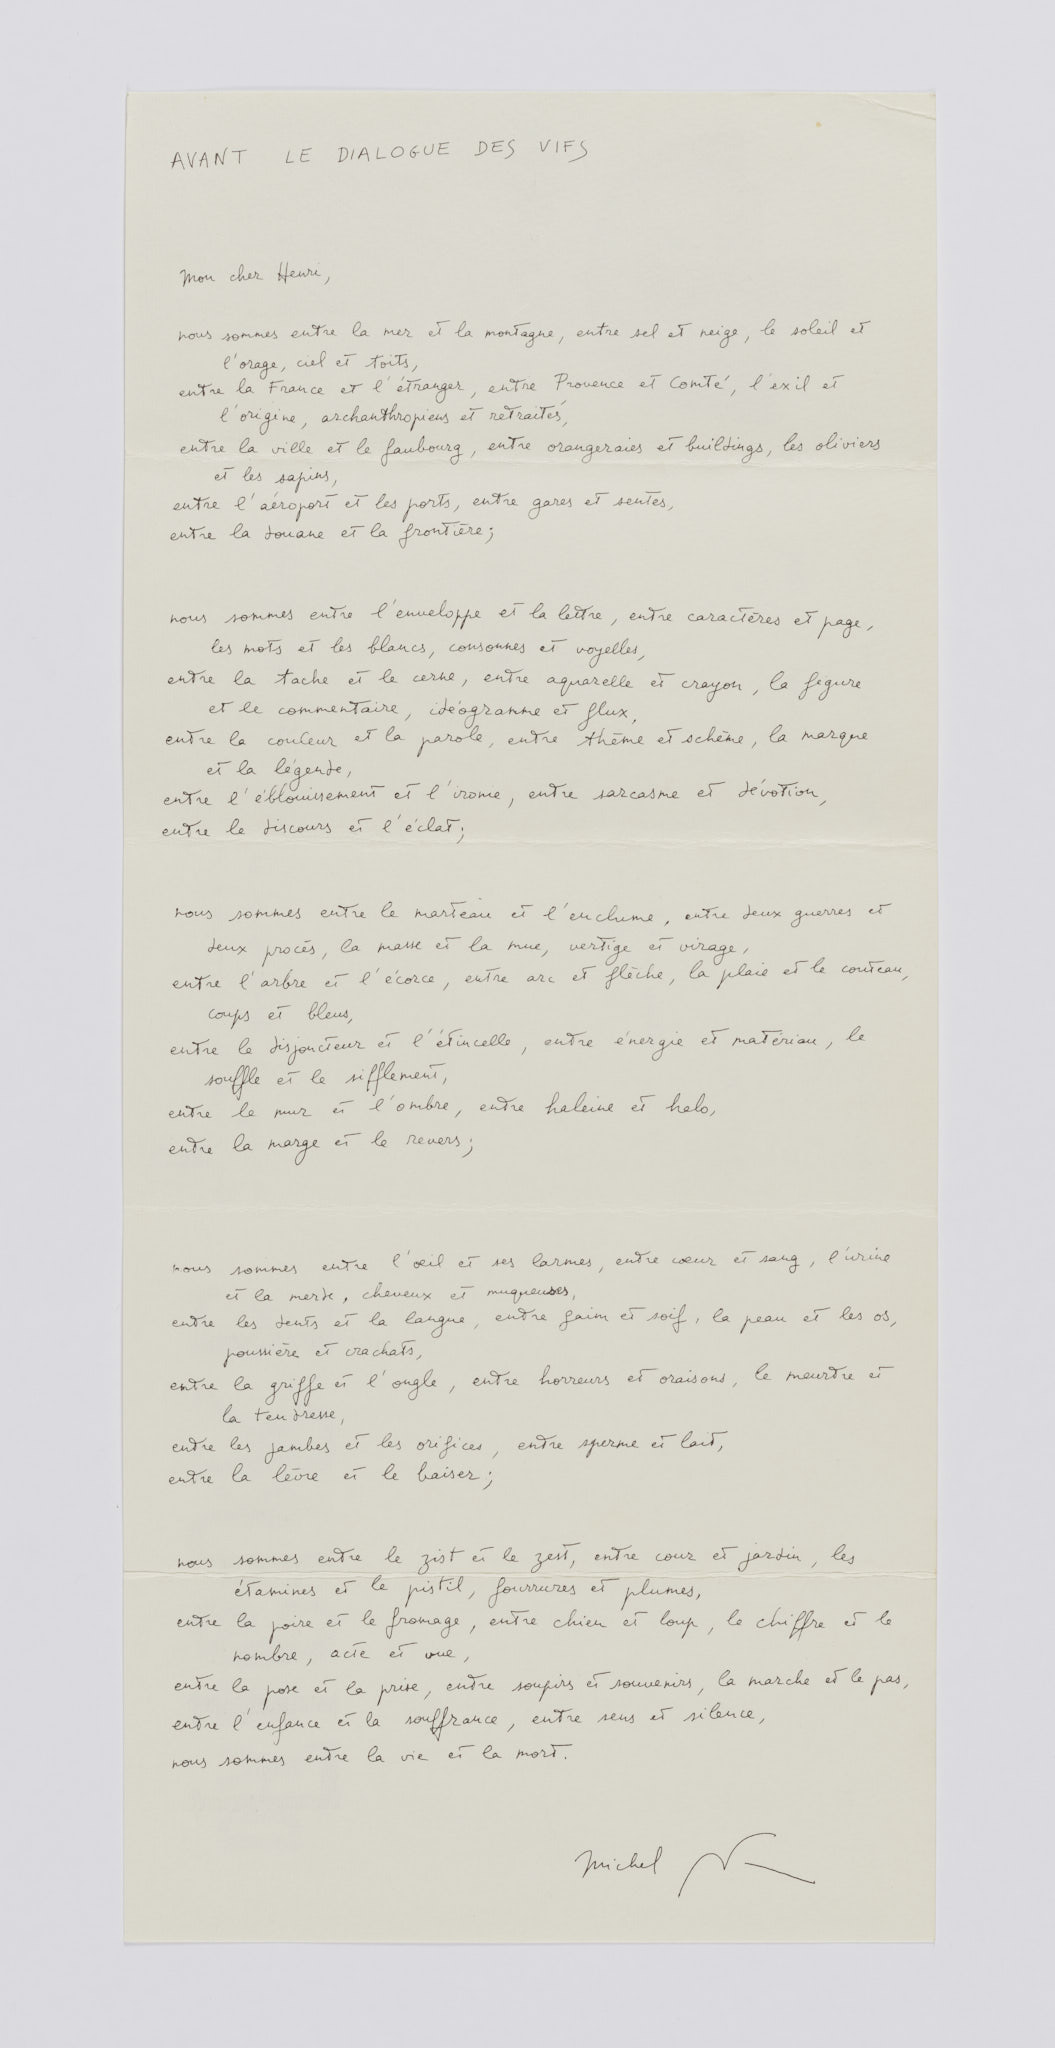 AVANT LE DIALOGUE DES VIFS
Mon cher Henri,
nous sommes entre la mer et la montagne, entre sel et neige, le soleil et
l'orage, ciel et toits,
entre la France et l'étranger, entre Provence et Comté, l'exil et
l'origine, archanthropiens et retraités,
entre la ville et le faubourg, entre orangeraies et buildings, les oliviers
et les sapins,
entre l'aéroport et les ports, entre gares et sentes,
entre la douane et la frontière;
nous sommes entre l'enveloppe et la lettre, entre caractères et page,
les mots et les blancs, consonnes et voyelles,
entre la tache et le cerne, entre aquarelle et crayon, la figure
et le commentaire, idéogramme et flux,
entre la couleur et la parole, entre thème et schème, la marque
et la légende,
entre l'éblouissement et l'ironie, entre sarcasme et dévotion,
entre le discours et l'éclat;
nous sommes entre le marteau et l'enclume, entre deux guerres et
deux procès, la masse et la mue, vertige et virage,
entre l'arbre et l'écorce, entre arc et flèche, la plaie et le couteau,
coups et bleus,
entre le disjoncteur et l'étincelle, entre énergie et matériau, le
souffle et le sifflement,
entre le mur et l'ombre, entre haleine et halo,
entre la marge et le revers;
nous sommes entre l'œil et ses larmes, entre cœur et sang, l'urine
et la merde, cheveux et muqueuses,
entre les dents et la langue, entre faim et soif, la peau et les os,
poussière et crachats,
entre la griffe et l'ongle, entre horreurs et oraisons, le meurtre et
la tendresse,
entre les jambes et les orifices, entre sperme et lait,
entre la lèvre et le baiser;
nous sommes entre le zist et le zest, entre cour et jardin, les
étamines et le pistil, fourrures et plumes,
entre la poire et le fromage, entre chien et loup, le chiffre et le
nombre, acte et vue,
entre la pose et la prise, entre soupirs et souvenirs, la marche et le pas,
entre l'enfance et la souffrance, entre sens et silence,
nous sommes entre la vie et la mort.
Michel